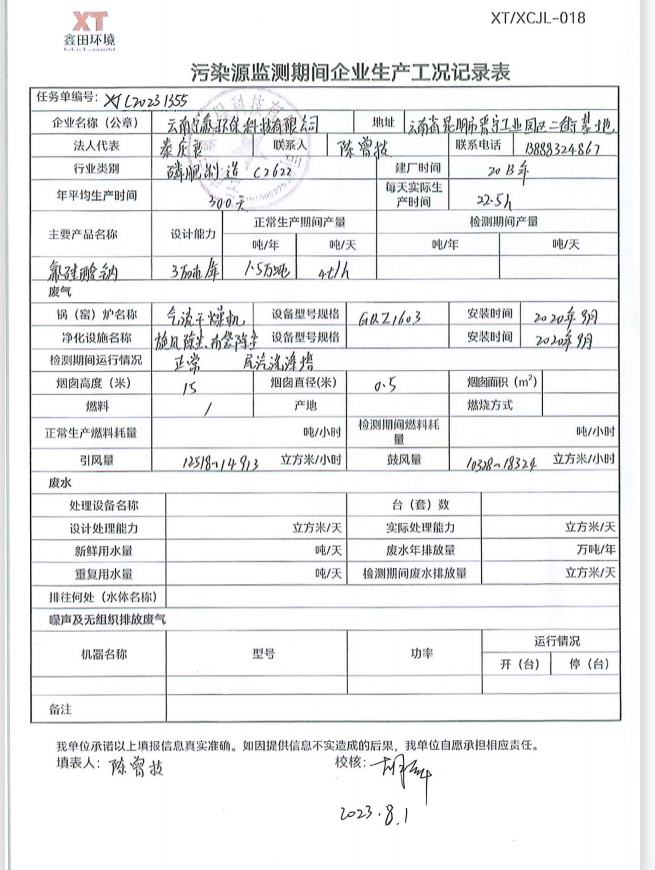 XT/XCJL-018
XT
鑫田环境
污染源监测期间企业生产工况记录表
任务单编号: XTC20231355
企业名称（公章） 云南 环保科技有限公司 地址 云南省昆明市晋宁工业园区二街基地
法人代表 秦庆良 联系人 陈曾技 联系电话 13888324867
行业类别 磷肥制造 C2622 建厂时间 2013年
年平均生产时间 300天 每天实际生产时间 22.5h
主要产品名称 设计能力 正常生产期间产量 检测期间产量
吨/年 吨/天 吨/年 吨/天
氟硅酸钠 3万吨/年 1.5万吨 4t/h
废气
锅（窑）炉名称 气流干燥机 设备型号规格 GQZ1603 安装时间 2020年9月
净化设施名称 旋风除尘、布袋除尘 设备型号规格 安装时间 2020年9月
检测期间运行情况 正常 尾汽洗涤塔
烟囱高度（米） 15 烟囱直径(米) 0.5 烟囱面积（m²）
燃料 / 产地 燃烧方式
正常生产燃料耗量 吨/小时 检测期间燃料耗量 吨/小时
引风量 12518~14913 立方米/小时 鼓风量 10328~18324 立方米/小时
废水
处理设备名称 台（套）数
设计处理能力 立方米/天 实际处理能力 立方米/天
新鲜用水量 吨/天 废水年排放量 万吨/年
重复用水量 吨/天 检测期间废水排放量 立方米/天
排往何处（水体名称）
噪声及无组织排放废气
机器名称 型号 功率 运行情况
开（台） 停（台）
备注
我单位承诺以上填报信息真实准确。如因提供信息不实造成的后果，我单位自愿承担相应责任。
填表人: 陈曾技 校核:
2023.8.1